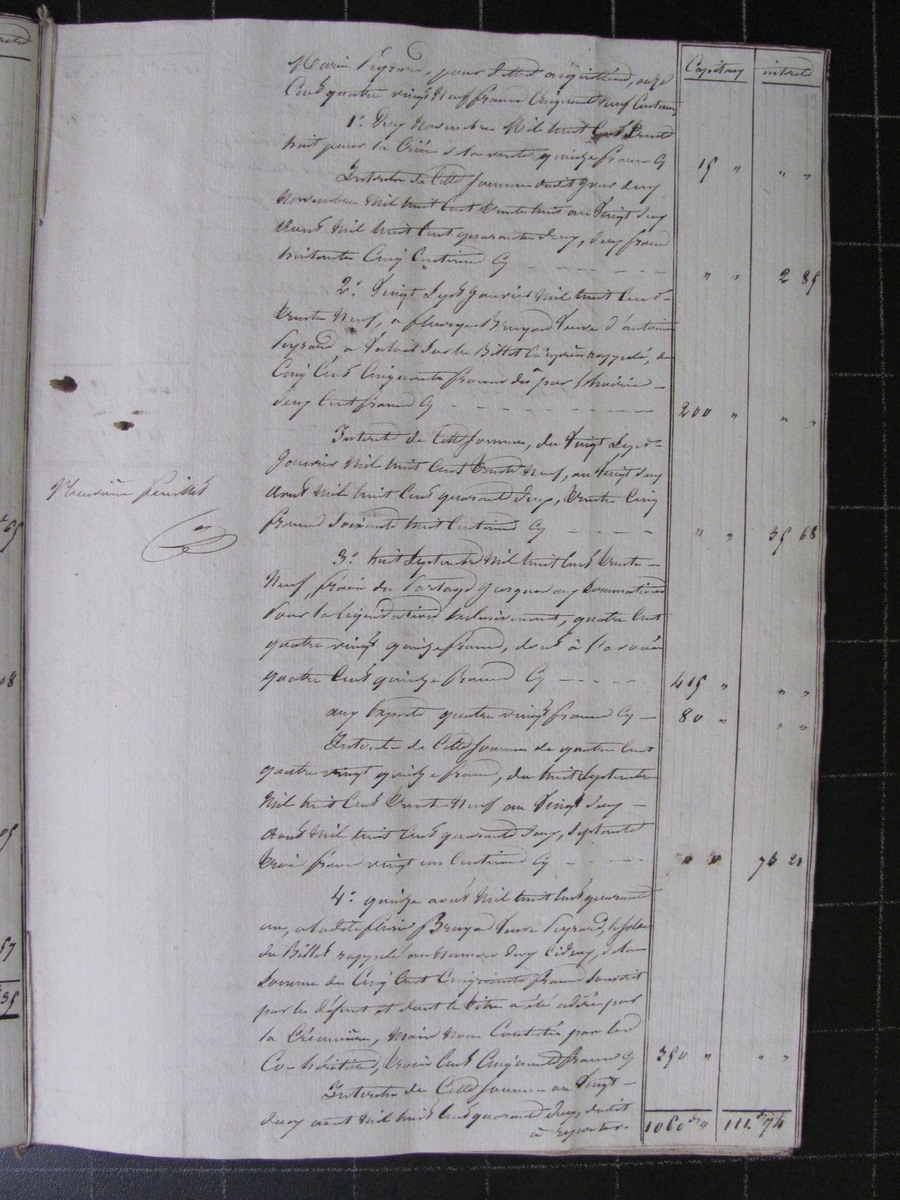 Capitaux intérêts
Marie Peyrard, pour dettes acquittées, onze
Cent quatre vingt Neuf francs Cinquante Neuf Centimes
1° Deux Novembre Mil huit Cent Trente
huit pour la Criée de la vente quinze francs Cy 15 " " "
Intérêts de Cette Somme dudit jour deux
Novembre Mil huit Cent Trente huit au Vingt deux
Avril Mil huit Cent quarante deux, deux francs
huitante Cinq Centimes Cy - - - - - " " 2 85
2° Vingt Sept Janvier Mil huit Cent
Trente Neuf, a Bruyas Veuve d'antoine
Peyrard a valoir Sur le Billet Ci-après rappelé, de
Cinq Cent Cinquante francs dus par l'hoirie -
deux Cent francs Cy - - - - - 200 " " "
Intérêts de Cette Somme, du Vingt Sept
Janvier Mil huit Cent Trente Neuf, au Vingt deux
Avril Mil huit Cent quarante deux, Trente Cinq
francs Soixante huit Centimes Cy - - - - " " 35 68
Neuvième feuillet
3° huit Septembre Mil huit Cent Trente
Neuf, frais du Partage jusques aux Sommations
Pour la Liquidation Inclusivement, quatre Cent
quatre vingt quinze francs, dont à l'avoué
quatre Cent quinze francs Cy - - - - 415 " " "
aux Experts quatre vingt francs Cy - 80 " " "
Intérêts de Cette Somme de quatre Cent
quatre vingt quinze francs, du huit Septembre
Mil huit Cent Trente Neuf au Vingt deux -
Avril Mil huit Cent quarante deux, Septante
Trois francs vingt un Centimes Cy - - - - " " 73 21
4° quinze avril Mil huit Cent quarante
un, a ladite Bruyas Veuve Peyrard, le solde
du Billet rappelé au Numéro deux Ci-dessus, de la
Somme de Cinq Cent Cinquante francs Souscrit
par le défunt et dont le titre a été adiré par
la Créancière, Mais Non Contesté par les
Co-héritiers, Trois Cent Cinquante francs Cy 350 " " "
Intérêts de Cette Somme au Vingt -
deux avril Mil huit Cent quarante deux, dudit
à reporter. 1060 " 111 74